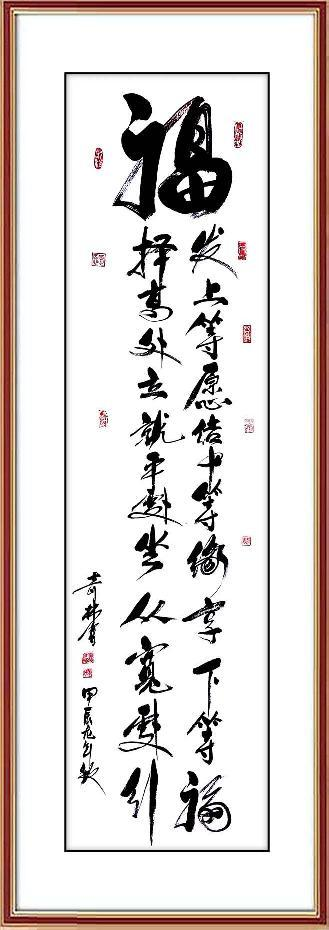 福
发上等愿结中等缘享下等福
择高处立就平處坐从寬處行
甲辰